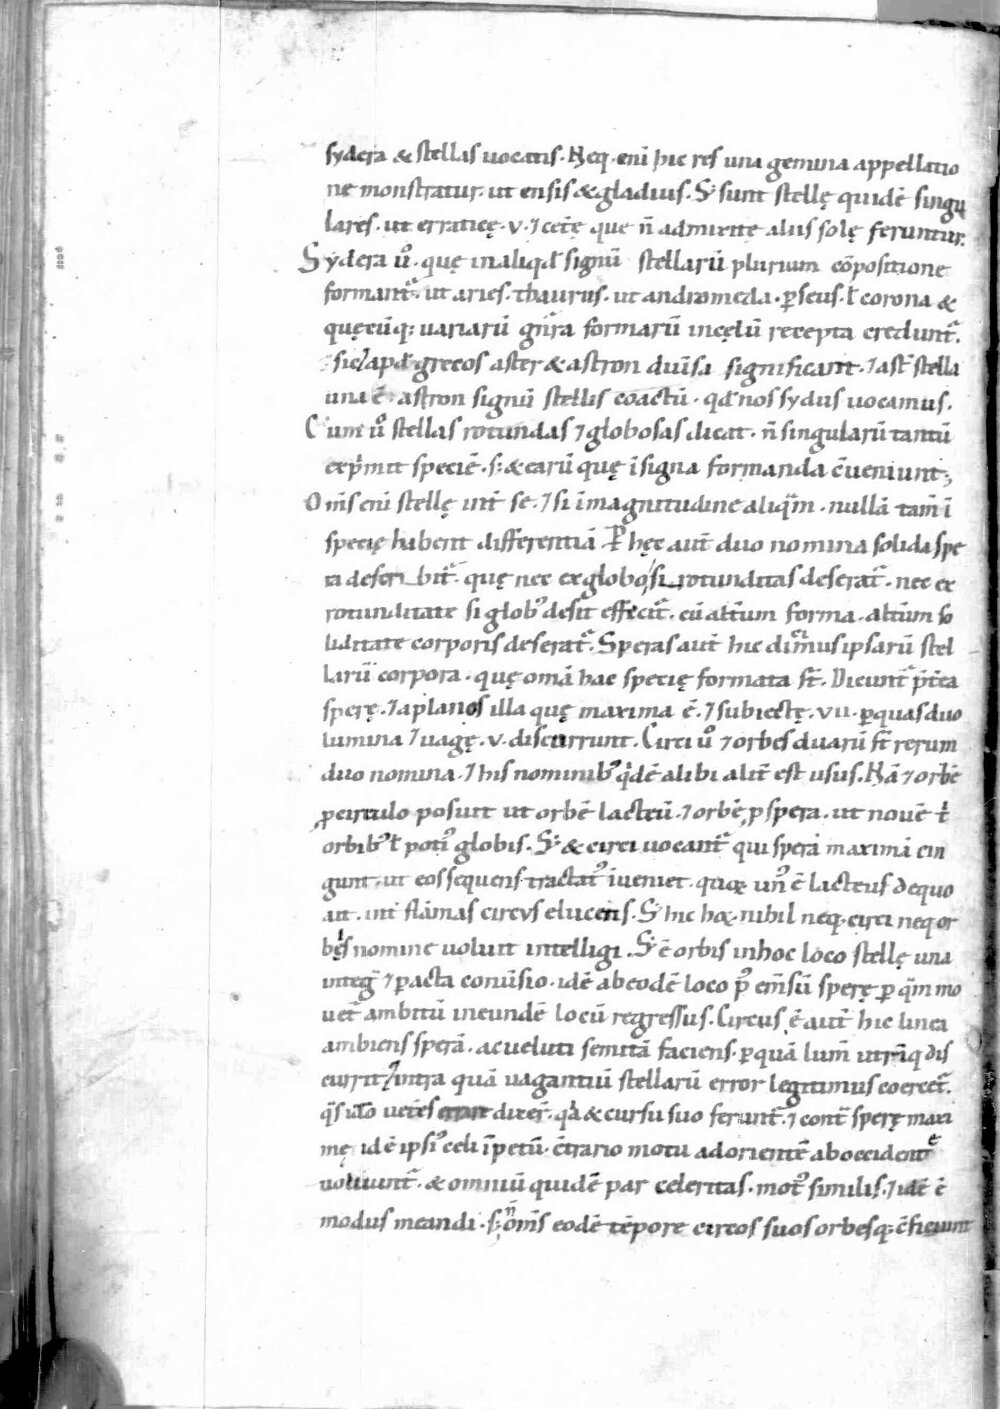 sydera & stellas uocatis. Neq. eni hic res una gemina appellatio
ne monstratur. ut ensis & gladius. S; sunt stellę quidē singu
lares. ut erraticę. v. ⁊ cetę que n̄ admixte aliis solę feruntur.
Sydera u͛o. quę in aliqd signū stellarū plurium cōpositione
formant᷑. ut aries. thaurus. ut andromeda. ꝑseus. ł corona &
quęcūq; uariarū gn̄ra formarū in cęlū recepta credunt᷑.
sic apd grecos aster & astron diūsa significant. ⁊ ast̄ stella
una ē. astron signū stellis coactū. qd nos sydus uocamus.
Cum u͛o stellas rotundas ⁊ globosas dicat. n̄ singularū tantū
exp̄mit speciē. s; & earū quę ī signa formanda c̄ueniunt;
Om̄s eni stellę int̄ se. ⁊ si ī magnitudine aliqᷓm. nullā tam̄ ī
specię habent differentiā. P̄ hęc aut̄ duo nomina solida spe
ra describit᷑. quę nec ex globo si rotunditas deserat᷑. nec ex
rotunditate si glob᷒ desit effecit᷑. cū alt̄um forma. alt̄um so
liditate corporis deserat᷑. Speras aut̄ hic dim̄us ipsarū stel
larū corpora. quę om̄ia hac specię formata st̄. Dicunt᷑ p̄t̄ea
sperę. ⁊ aplanos illa quę maxima ē. ⁊ subiectę. vii. ꝑ quas duo
lumina ⁊ uagę. v. discurrunt. Circi u͛o ⁊ orbes duarū st̄ rerum
duo nomina. ⁊ his nominib᷒ qdē alibi alit̄ est usus. Nā ⁊ orbē
ꝓ circulo posuit ut orbē lacteū. ⁊ orbē ꝓ spera. ut nouē t̄
orbib᷒ ł poti᷒ globis. S; & circi uocant᷑ qui sperā maximā cin
gunt. ut eos sequens tractat᷒ īueniet. quoꝝ un᷒ ē lacteus de quo
ait. int̄ flāmas circus elucens. S; hic hoꝝ. nihil neq. circi neq or
bis nomine uoluit intelligi. S; ē orbis in hoc loco stellę una
integ̃ ⁊ ꝑacta conūsio. idē ab eodē loco p᷒ em̄sū sperę ꝑ qᷓm mo
uet᷑ ambitū in eundē locū regressus. Circus ē aut̄ hic linea
ambiens sperā. ac ueluti semitā faciens. ꝑ quā lum̄ utrūq dis
currit ⁊ intra quā uagantiū stellarū error legitimus coercet᷑.
qᷓs ido uet̄es errare dixer̄. qa & cursu suo ferunt᷑. ⁊ cont̃ sperę maxi
mę idē ipsi᷒ celi īpetū. c̄trario motu ad orientē ab occidente
uoluunt᷑. & omniū quidē par celeritas. mot᷒ similis. ⁊ idē ē
modus meandi. s; n̄ om̄s eodē tēpore circos suos orbesq; c̄ficiunt